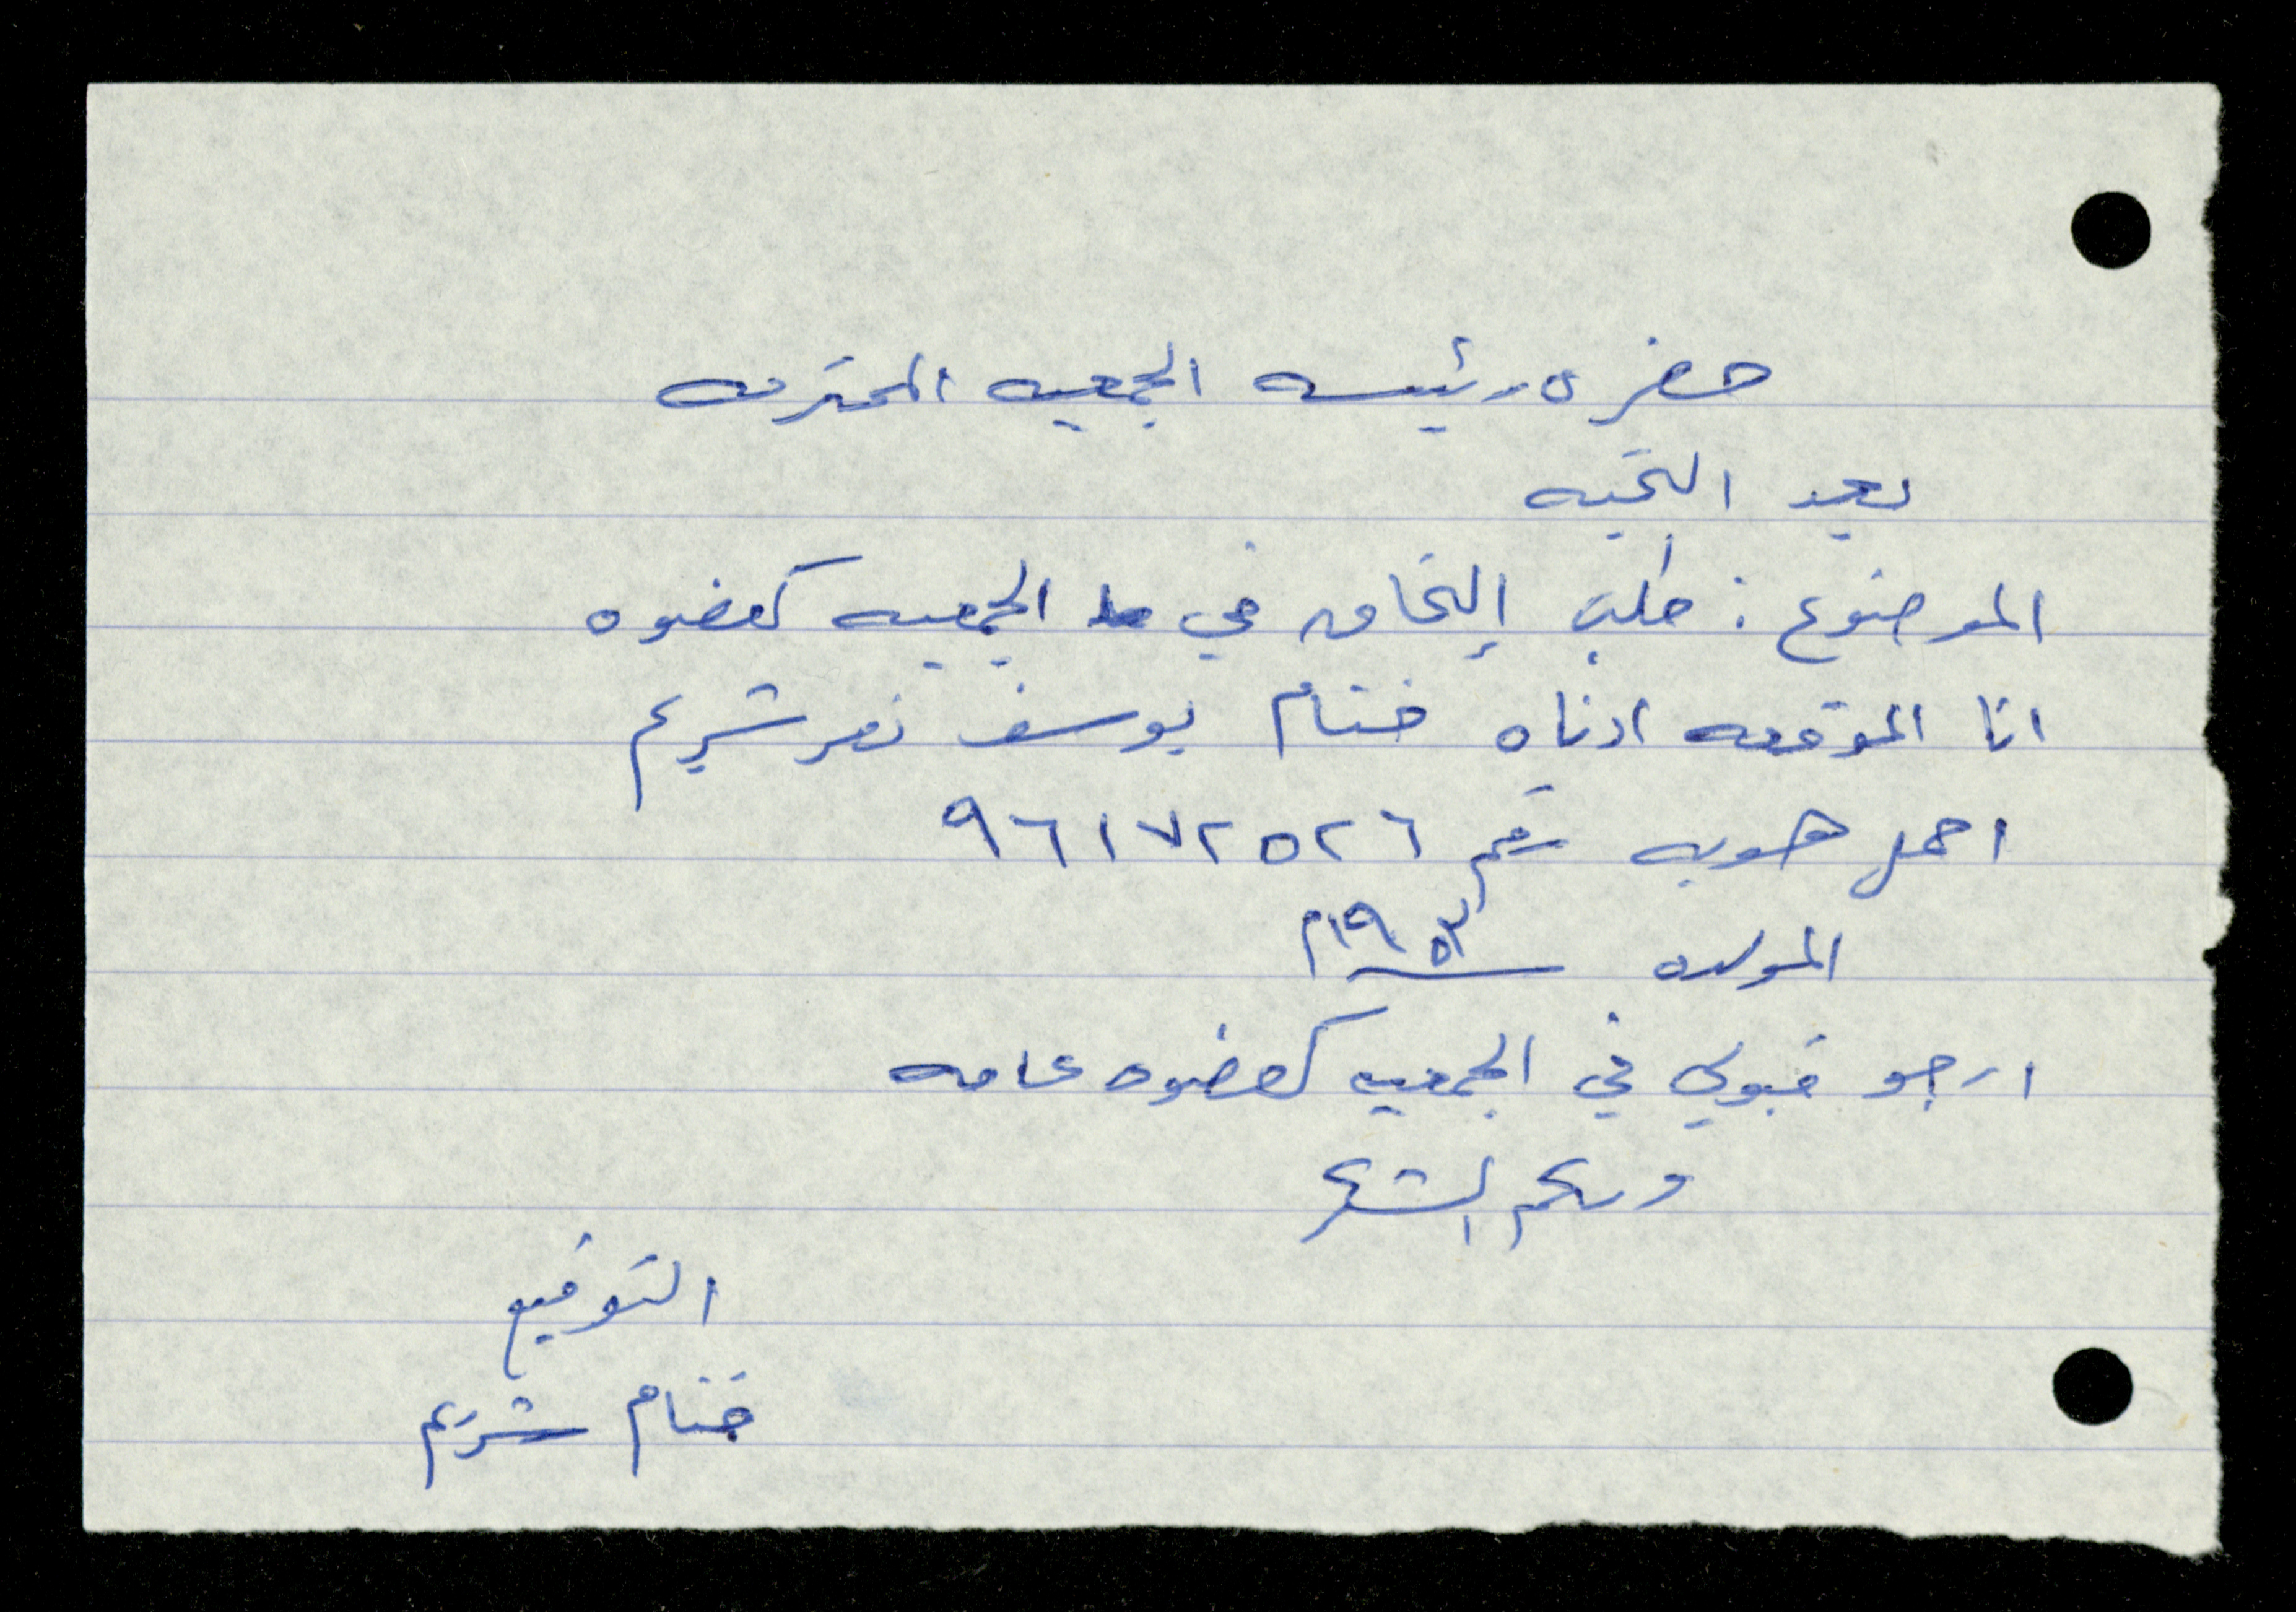 حضرة رئيسه الجمعيه المحترمه
بعد التحيه
الموضوع : طلب إلتحاق في الجمعيه كعضوه
انا الموقعه ادناه ختام يوسف نمر شريم
احمل هويه رقم ٩٦١٧٢٥٢٦
المولده ١٩٥٣م
ارجو قبولي في الجمعيه كعضوه عامه
ولكم الشكر
التوقيع
ختام شريم